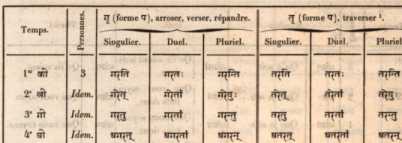 Temps. Personnes. गृ (forme प), arroser, verser, répandre. तृ (forme प), traverser ¹.
Singulier. Duel. Pluriel. Singulier. Duel. Pluriel
1ᵉʳ की 3 गरति गरतः गरन्ति तरति तरतः तरन्ति
2ᵉ Idem. गरेत् गरेतां गरेयुः तरेत् तरेतां
3ᵉ गी Idem. गरतु गरतां गरन्तु तरतु तरतां तरन्तु
4ᵉ घी Idem. अगरत् अगरतां अगरन् अतरत् अतरतां अतरन्